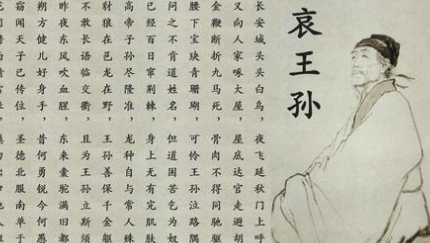 哀王孙
长安城头头白乌，夜飞延秋门上呼
又向人家啄大屋，屋底达官走避胡
金鞭断折九马死，骨肉不得同驰驱
腰下宝玦青珊瑚，可怜王孙泣路隅
问之不肯道姓名，但道困苦乞为奴
已经百日窜荆棘，身上无有完肌肤
高帝子孙尽隆准，龙种自与常人殊
豺狼在邑龙在野，王孙善保千金躯
不敢长语临交衢，且为王孙立斯须
昨夜东风吹血腥，东来橐驼满旧都
朔方健儿好身手，昔何勇锐今何愚
窃闻天子已传位，圣德北服南单于